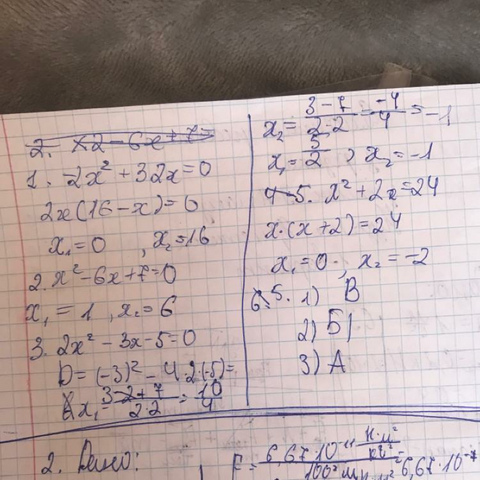 2. x2 - 6x + 7 =
1. -2x² + 32x = 0
2x(16 - x) = 0
x₁ = 0 , x₂ = 16
2. x² - 6x + 7 = 0
x₁ = 1 , x₂ = 6
3. 2x² - 3x - 5 = 0
D = (-3)² - 4·2·(-5) =
x₁ = 3 + 7 / 2·2 = 10 / 4
x₂ = 3 - 7 / 2·2 = -4 / 4 = -1
x₁ = 5 / 2 , x₂ = -1
4. x² + 2x = 24
x·(x + 2) = 24
x₁ = 0 , x₂ = -2
5. 1) В
2) Б
3) А
2. Дано:
F = 6,67·10⁻¹¹ Н·м² / кг² 6,67·10⁻⁷